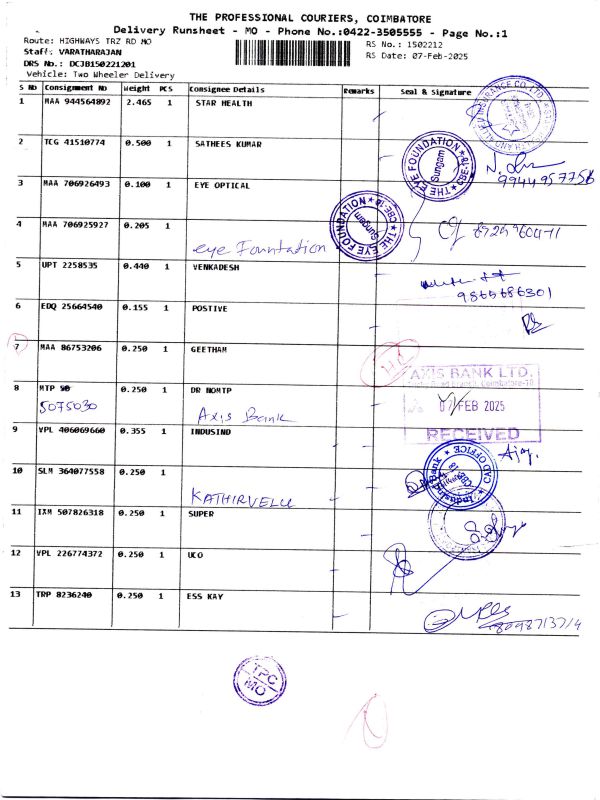 THE PROFESSIONAL COURIERS, COIMBATORE
Delivery Runsheet - MO - Phone No.:0422-3505555 - Page No.:1
Route: HIGHWAYS TRZ RD MO
RS No.: 1502212
Staff: VARATHARAJAN
RS Date: 07-Feb-2025
DRS No.: DCJB150221201
Vehicle: Two Wheeler Delivery
S No Consignment No Weight PCS Consignee Details Remarks Seal & Signature
1 MAA 944564892 2.465 1 STAR HEALTH
2 TCG 41510774 0.500 1 SATHEES KUMAR
9944957756
3 MAA 706926493 0.100 1 EYE OPTICAL
THE EYE FOUNDATION Sungam CBE-18
4 MAA 706925927 0.205 1
eye Fountation
THE EYE FOUNDATION Sungam CBE-18
5 UPT 2258535 0.440 1 VENKADESH
9865686301
6 EDQ 25664540 0.155 1 POSTIVE
7 MAA 86753206 0.250 1 GEETHAM
8 MTP 0.250 1 DR NOMTP
5075030
Axis Bank
AXIS BANK LTD.
07 FEB 2025
RECEIVED
9 VPL 406069660 0.355 1 INDUSIND
Ajay.
10 SLM 364077558 0.250 1
KATHIRVELU
IndusInd Bank CAD OFFICE
11 IXM 507826318 0.250 1 SUPER
12 VPL 226774372 0.250 1 UCO
13 TRP 8236240 0.250 1 ESS KAY
8098713714
TPC
MO